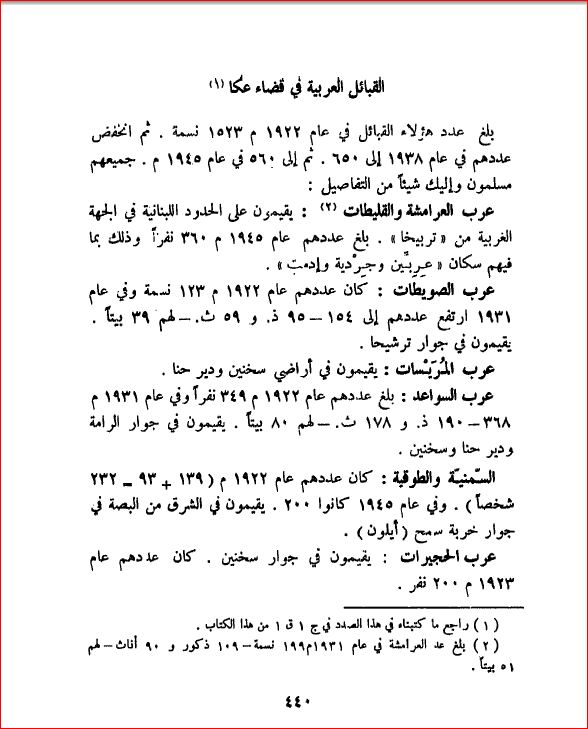 القبائل العربية في قضاء عكا (١)
بلغ عدد هؤلاء القبائل في عام ١٩٢٢ م ١٥٢٣ نسمة . ثم انخفض
عددهم في عام ١٩٣٨ إلى ٦٥٠ . ثم إلى ٥٦٠ في عام ١٩٤٥ م . جميعهم
مسلمون وإليك شيئاً من التفاصيل :
عرب العرامشة والقليطات (٢) : يقيمون على الحدود اللبنانية في الجهة
الغربية من « تربيخا » . بلغ عددهم عام ١٩٤٥ م ٣٦٠ نفراً وذلك بما
فيهم سكان « عربّين وجرْدية وإدمث » .
عرب الصويطات : كان عددهم عام ١٩٢٢ م ١٢٣ نسمة وفي عام
١٩٣١ ارتفع عددهم إلى ١٥٤ – ٩٥ ذ. و ٥٩ ث. – لهم ٣٩ بيتاً .
يقيمون في جوار ترشيحا .
عرب المُرَيْسات : يقيمون في أراضي سخنين ودير حنا .
عرب السواعد : بلغ عددهم عام ١٩٢٢ م ٣٤٩ نفراً وفي عام ١٩٣١ م
٣٦٨ – ١٩٠ ذ. و ١٧٨ ث. – لهم ٨٠ بيتاً . يقيمون في جوار الرامة
ودير حنا وسخنين .
السّمنيّة والطوقية : كان عددهم عام ١٩٢٢ م ( ١٣٩ + ٩٣ – ٢٣٢
شخصاً ) . وفي عام ١٩٤٥ كانوا ٢٠٠ . يقيمون في الشرق من البصة في
جوار خربة سمح ( أيلون ) .
عرب الحجيرات : يقيمون في جوار سخنين . كان عددهم عام
١٩٢٣ م ٢٠٠ نفر .
( ١ ) راجع ما كتبناه في هذا الصدد في ج ١ ق ١ من هذا الكتاب .
( ٢ ) بلغ عد العرامشة في عام ١٩٣١م ١٩٩ نسمة – ١٠٩ ذكور و ٩٠ أناث – لهم
٥١ بيتاً .
٤٤٠